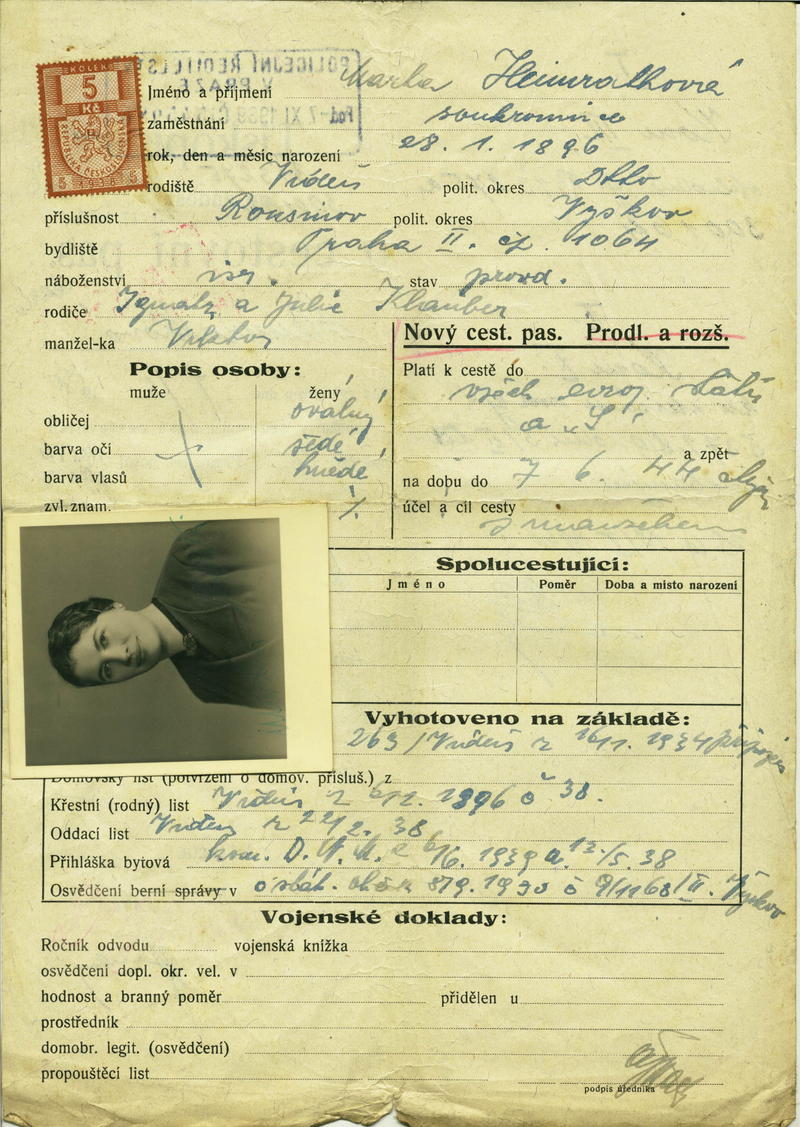 KOLEK
5
Kč
REPUBLIKA ČESKOSLOVENSKÁ
POLICEJNÍ ŘEDITELSTVÍ
V PRAZE
Jméno a příjmení Marta Heinrathová
zaměstnání soukromnice
rok, den a měsíc narození 28. 1. 1896
rodiště Vídeň polit. okres Dtto
příslušnost Rousínov polit. okres Vyškov
bydliště Praha II. čp. 1064
náboženství isr. stav provd.
rodiče Ignatz a Julie Klauber
manžel-ka Viktor
Nový cest. pas. Prodl. a rozš.
Popis osoby:
muže ženy
obličej oválný
barva očí šedé
barva vlasů hnědé
zvl. znam. %
Platí k cestě do
všech evrop. států
a „S"
a zpět
na dobu do 7 6. 44
účel a cíl cesty
s manželem
Spolucestující:
Jméno Poměr Doba a místo narození
Vyhotoveno na základě:
263/Vídeň z 16/11. 1934
Domovský list (potvrzení o domov. přísluš.) z
Křestní (rodný) list Vídeň z 1896 č 38.
Oddací list Vídeň z 22/2. 38
Přihláška bytová 1939 a 12./5. 38
Osvědčení berní správy v
Vojenské doklady:
Ročník odvodu vojenská knížka
osvědčení dopl. okr. vel. v
hodnost a branný poměr přidělen u
prostředník
domobr. legit. (osvědčení)
propouštěcí list
podpis úředníka